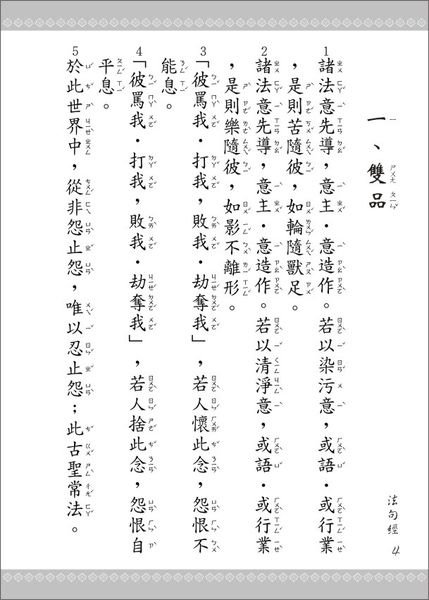 法句經 4
一、雙品
1 諸法意先導，意主．意造作。若以染污意，或語．或行業
，是則苦隨彼，如輪隨獸足。
2 諸法意先導，意主．意造作。若以清淨意，或語．或行業
，是則樂隨彼，如影不離形。
3 「彼罵我．打我，敗我．劫奪我」，若人懷此念，怨恨不
能息。
4 「彼罵我．打我，敗我．劫奪我」，若人捨此念，怨恨自
平息。
5 於此世界中，從非怨止怨，唯以忍止怨；此古聖常法。